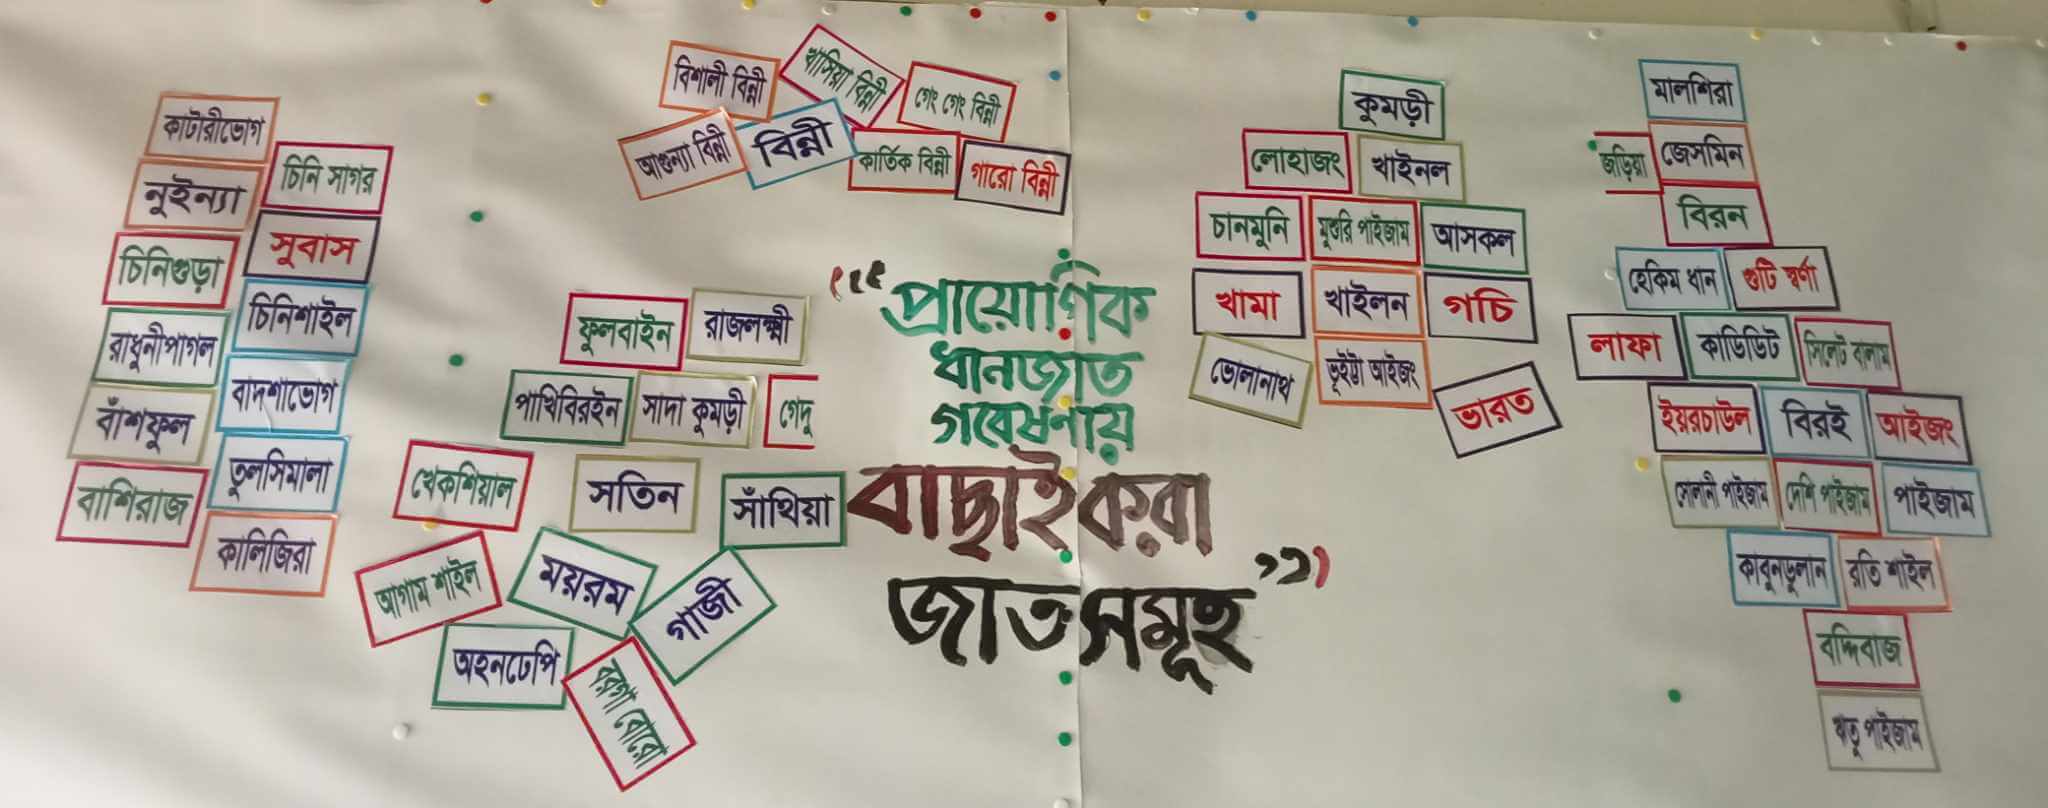 কাটারীভোগ
নুইন্যা
চিনি সাগর
সুবাস
চিনিগুড়া
চিনিশাইল
রাধুনীপাগল
বাদশাভোগ
বাঁশফুল
তুলসিমালা
বাশিরাজ
কালিজিরা
বিশালী বিন্নী
খাসিয়া বিন্নী
গেং গেং বিন্নী
আগুন্যা বিন্নী
বিন্নী
কার্তিক বিন্নী
গারো বিন্নী
ফুলবাইন
রাজলক্ষ্মী
পাখিবিরইন
সাদা কুমড়ী
গেদু
খেকশিয়াল
সতিন
সাঁথিয়া
আগাম শাইল
ময়রম
গাজী
অহনঢেপি
বরগা বোরো
"প্রায়োগিক
ধানজাত
গবেষণায়
বাছাই করা
জাতসমূহ"
কুমড়ী
লোহাজং
খাইনল
চানমুনি
মুশুরি পাইজাম
আসকল
খামা
খাইলন
গচি
ভোলানাথ
ভূইট্টা আইজং
ভারত
মালশিরা
জড়িয়া
জেসমিন
বিরন
হেকিম ধান
গুটি স্বর্ণা
লাফা
কাডিডিট
সিলেট বালাম
ইয়রচাউল
বিরই
আইজং
সোলানী পাইজাম
দেশি পাইজাম
পাইজাম
কাবুনডুলান
রতি শাইল
বদ্দিবাজ
ঋতু পাইজাম